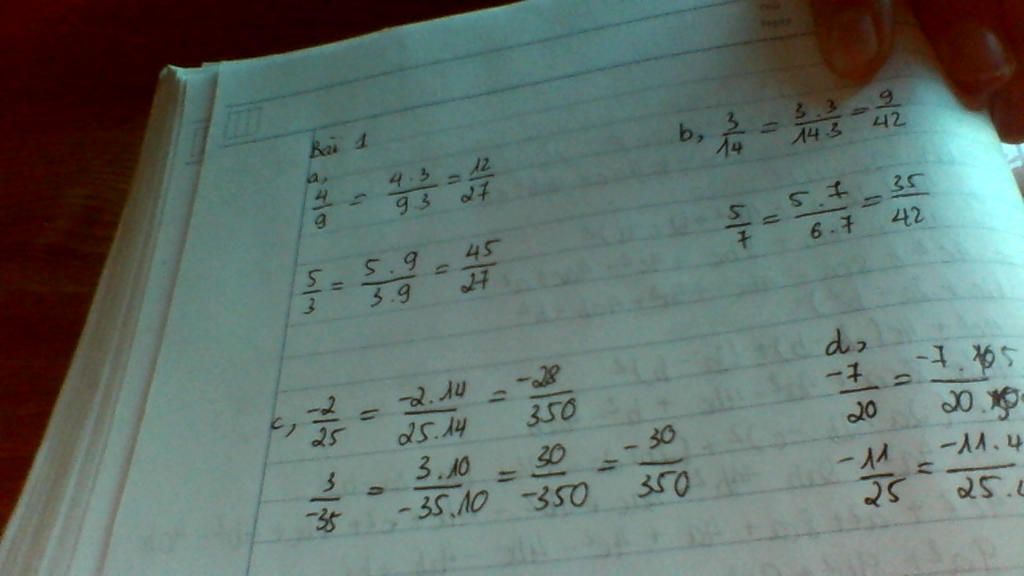 Bài 1
a,
4/9 = 4.3/9 3 = 12/27
5/3 = 5.9/3.9 = 45/27
b, 3/14 = 3.3/14 3 = 9/42
5/7 = 5.7/6.7 = 35/42
c, -2/25 = -2.14/25.14 = -28/350
3/-35 = 3.10/-35.10 = 30/-350 = -30/350
d,
-7/20 = -7.5/20.
-11/25 = -11.4/25.